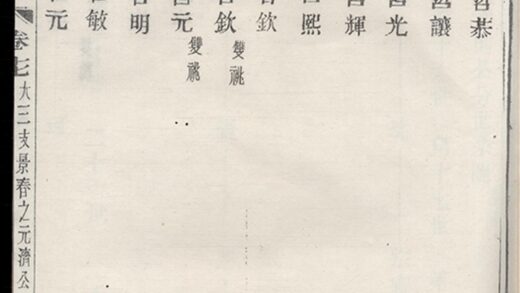 恭
讓
光
輝
熙
欽
欽
雙祧
元
雙祧
明
敏
元
卷七 大三支景春之元濟公